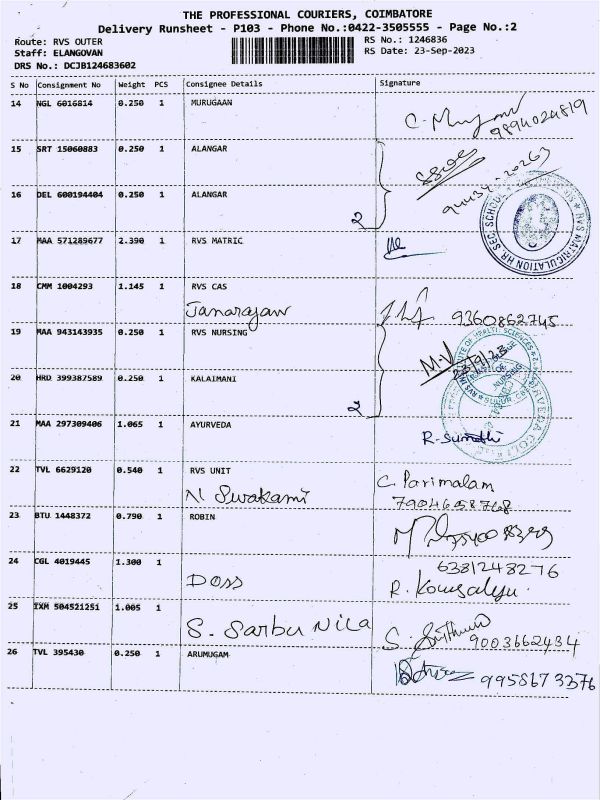 THE PROFESSIONAL COURIERS, COIMBATORE
Delivery Runsheet - P103 - Phone No.:0422-3505555 - Page No.:2
Route: RVS OUTER
RS No.: 1246836
Staff: ELANGOVAN
RS Date: 23-Sep-2023
DRS No.: DCJB124683602
S No Consignment No Weight PCS Consignee Details Signature
14 NGL 6016814 0.250 1 MURUGAAN
9894024819
15 SRT 15060883 0.250 1 ALANGAR
16 DEL 600194404 0.250 1 ALANGAR
2
RVS MATRICULATION HR. SEC. SCHOOL
17 MAA 571289677 2.390 1 RVS MATRIC
18 CMM 1004293 1.145 1 RVS CAS
Janarajan 9360862745
19 MAA 943143935 0.250 1 RVS NURSING
M.V 23/9/23
20 HRD 399387589 0.250 1 KALAIMANI
2
21 MAA 297309406 1.065 1 AYURVEDA
R-Sumathi
22 TVL 6629120 0.540 1 RVS UNIT
C. Parimalam
7904658768
23 BTU 1448372 0.790 1 ROBIN
24 CGL 4019445 1.300 1
6381248276
Doss R. Kowsalya
25 IXM 504521251 1.005 1
S. Sarbu Nila 9003662434
26 TVL 395430 0.250 1 ARUMUGAM
9958673376